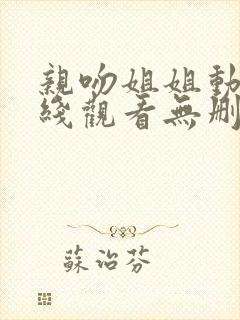 親吻姐姐動
綫觀看無刪
蘇治芬